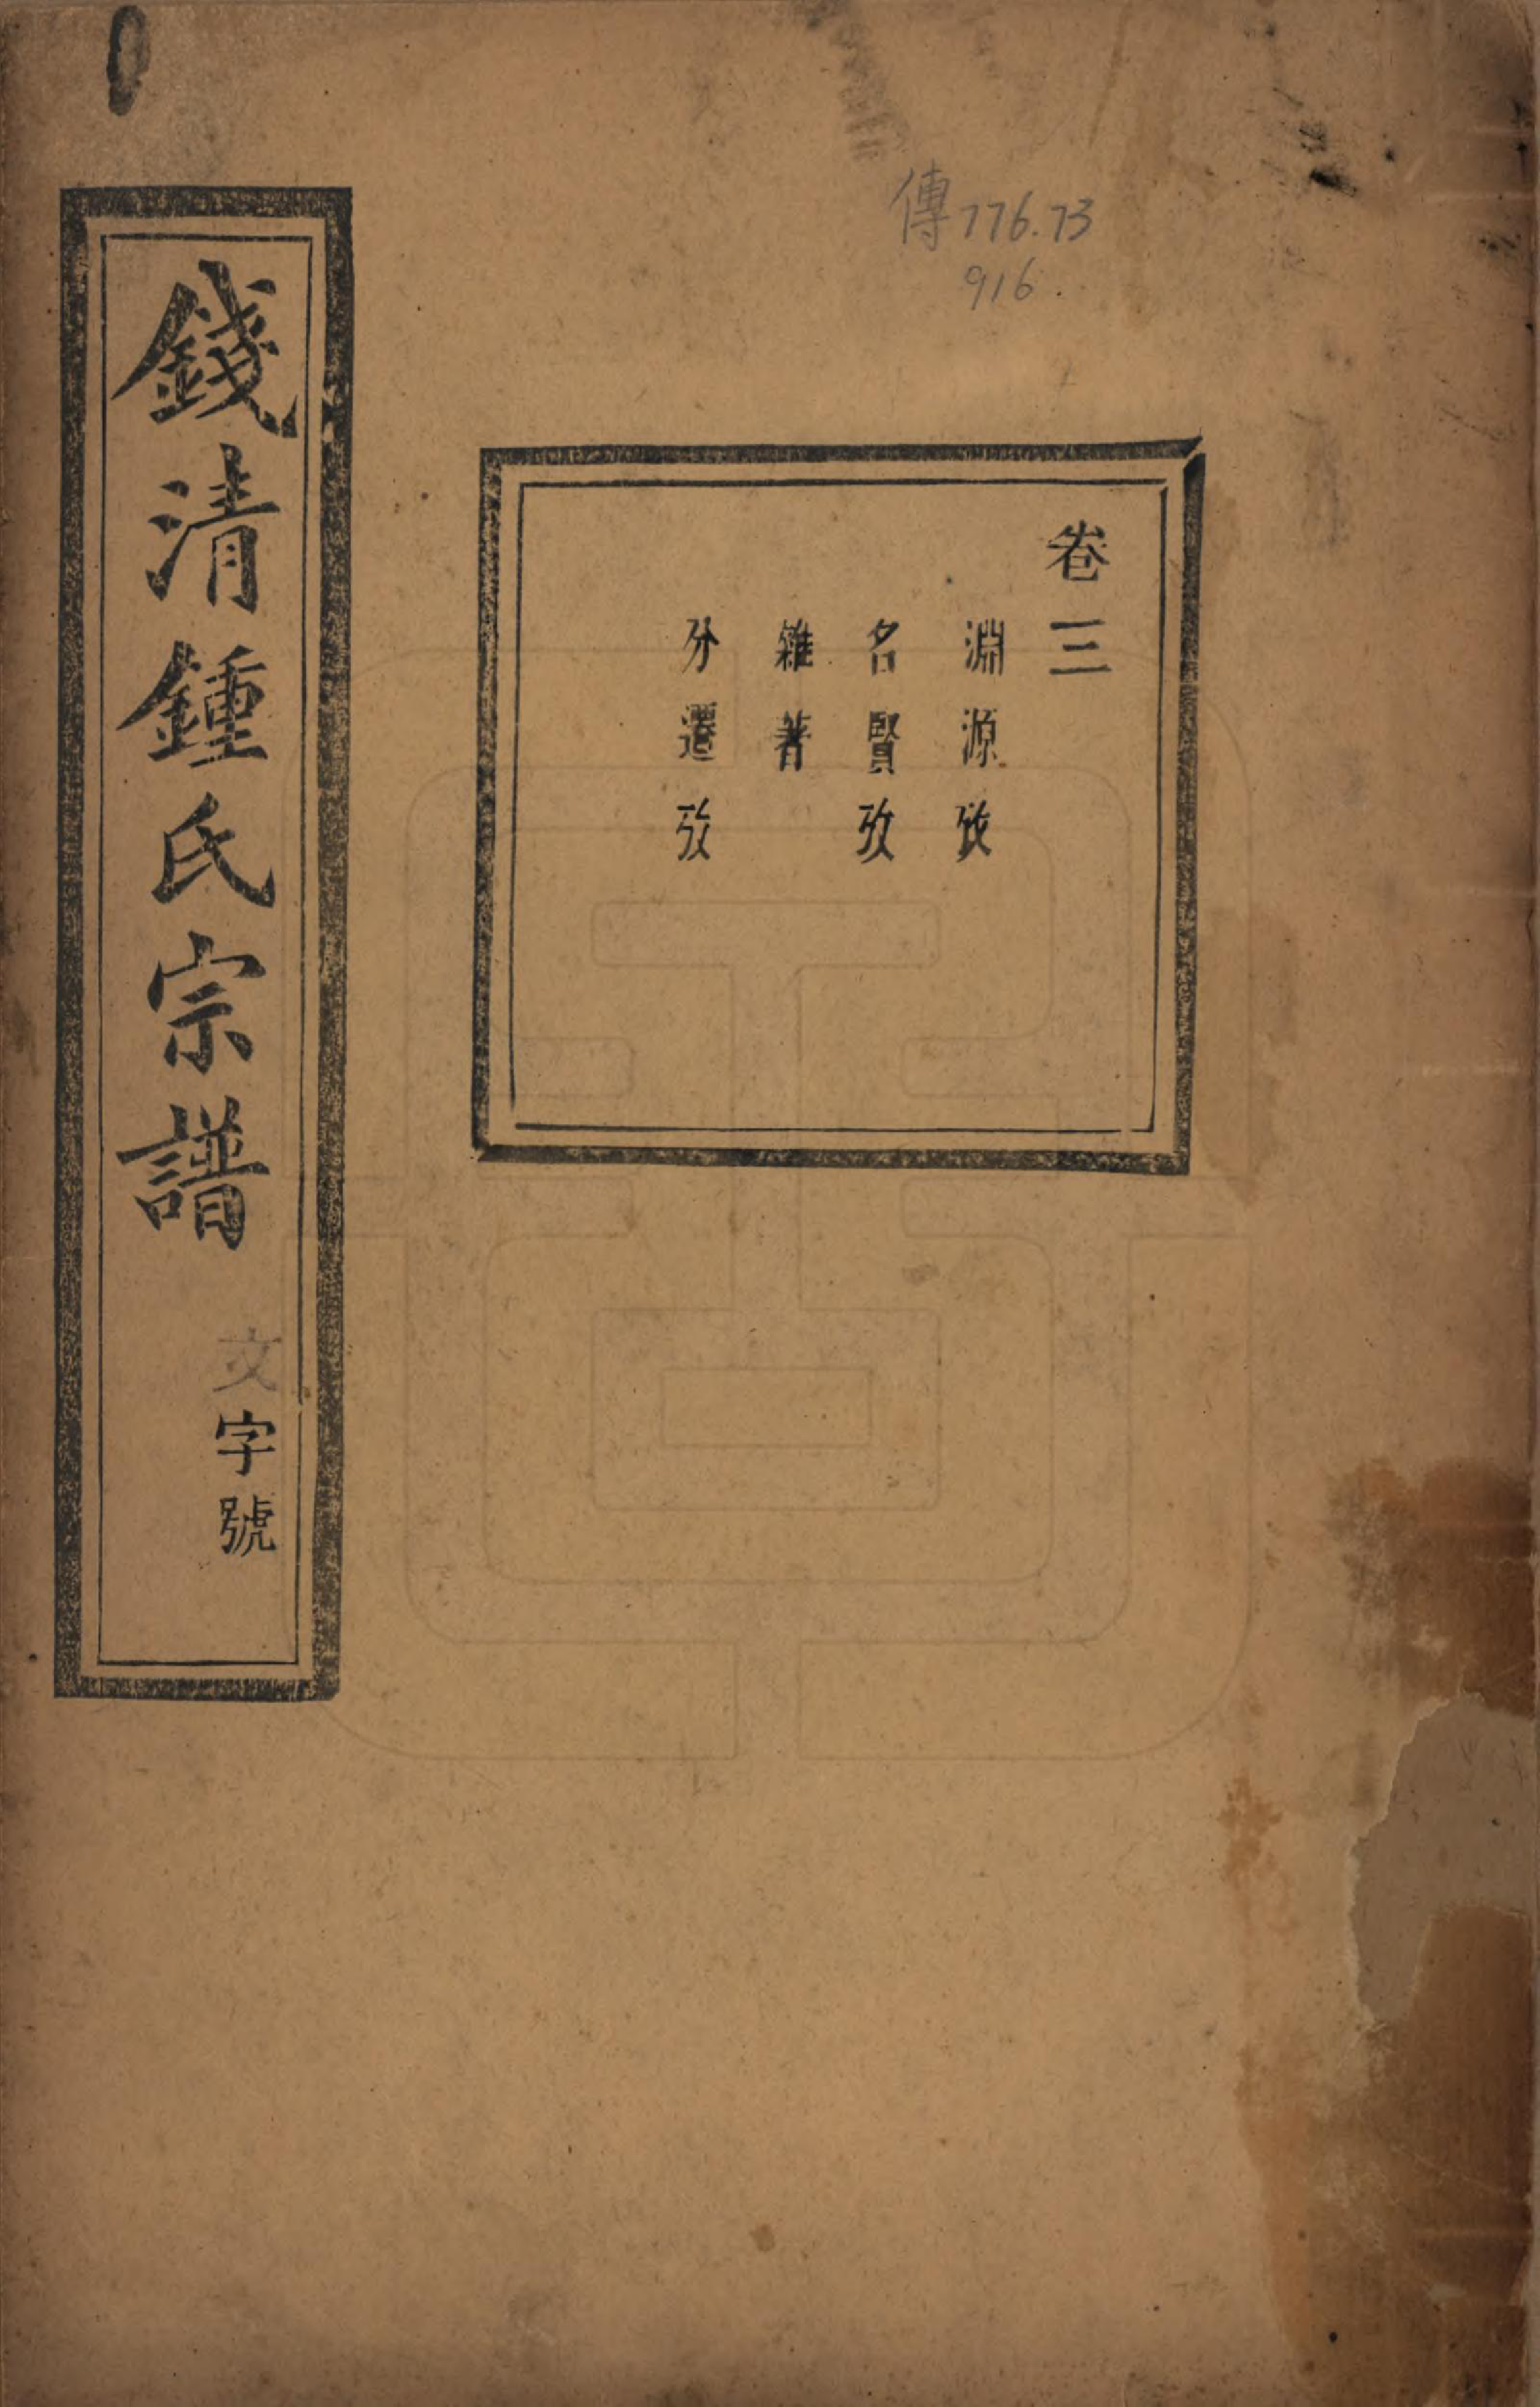 傳776.73
916.
卷三
淵源攷
名賢攷
雜著
分遷攷
錢清鍾氏宗譜
文字號